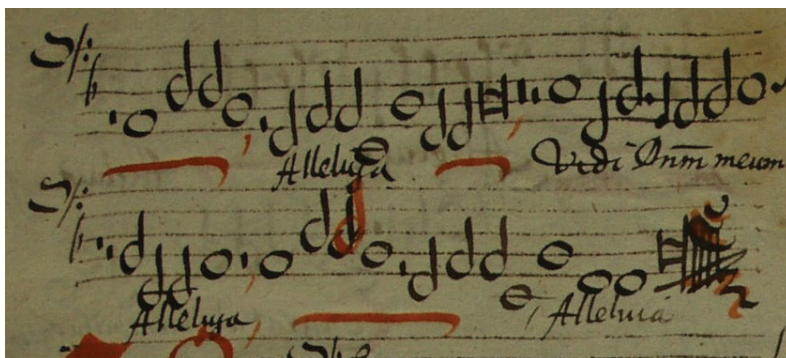 Alleluja Vidi Dnm̅ meum
Alleluja Alleluia